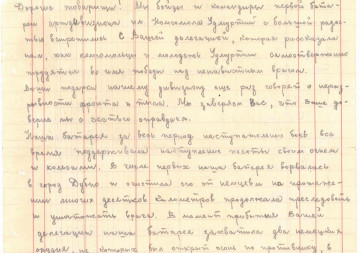 Дорогие товарищи! Мы бойцы и командиры первой бата-
реи дивизиона им Комсомола Удмуртии с большой радос-
тью встретились с Вашей делегацией, которая рассказала
нам, как комсомольцы и молодежь Удмуртии самоотверженно
трудятся во имя победы над ненавистным врагом.
Ваши подарки нашему дивизиону еще раз говорят о нераз-
рывности фронта и тыла. Мы заверяем Вас, что Ваше до-
верие мы с честью оправдаем.
Наша батарея за весь период наступательных боев все
время поддерживала наступление пехоты своим огнем
и колесами. В числе первых наша батарея ворвалась
в город Дубно и очистила его от немцев на протяже-
нии многих десятков километров продолжала преследовать
и уничтожать врага. В момент прибытия Вашей
делегации наша батарея захватила два немецких
орудия, из которых был открыт огонь по противнику, в